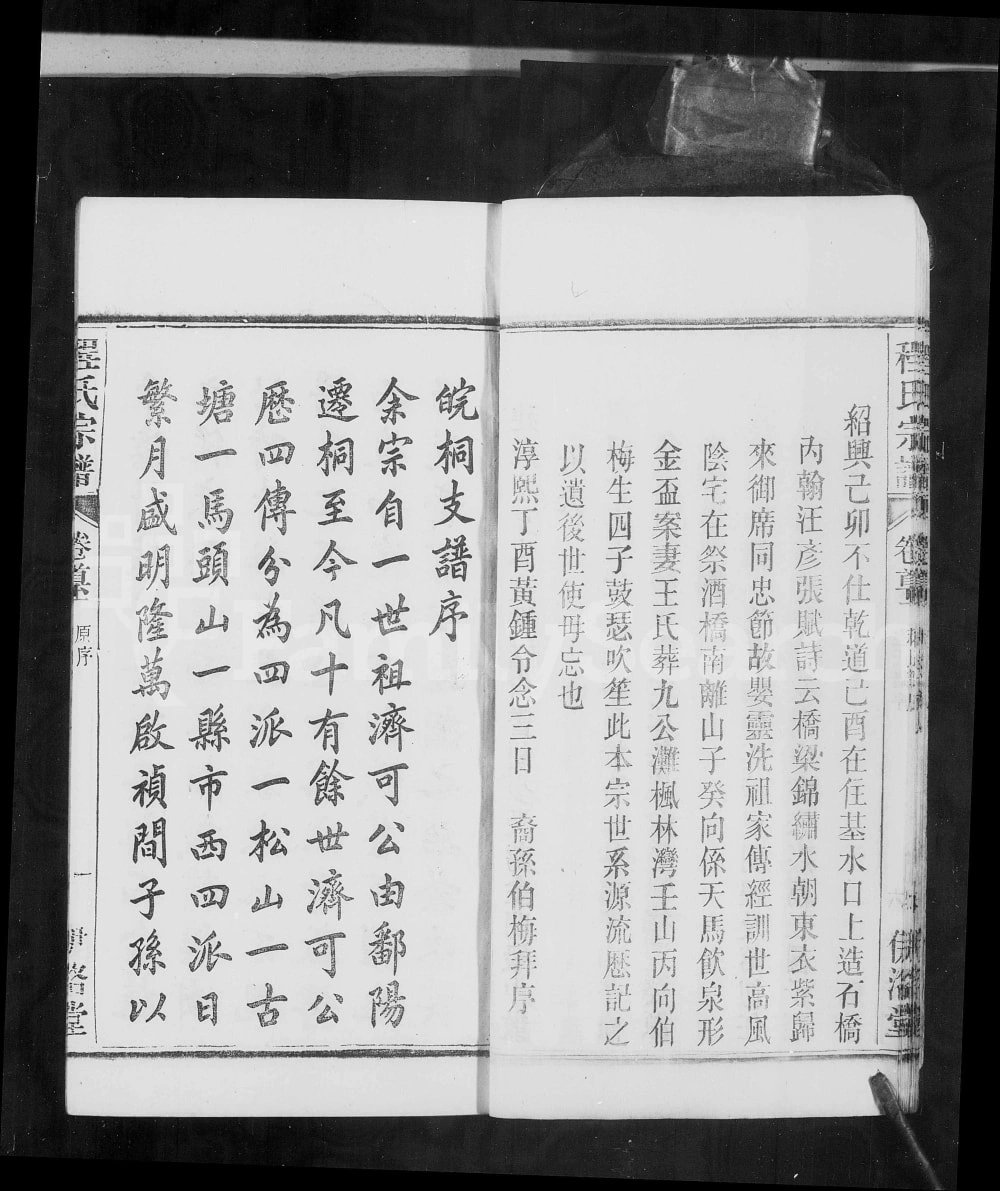 程氏宗譜
卷首
紹興己卯不仕乾道己酉在住基水口上造石橋
內翰汪彥張賦詩云橋梁錦繡水朝東衣紫歸
來御席同忠節故嬰靈洗祖家傳經訓世高風
陰宅在祭酒橋南離山子癸向係天馬飲泉形
金盃案妻王氏葬九公灘楓林灣壬山丙向伯
梅生四子鼓瑟吹笙此本宗世系源流歷記之
以遺後世使毋忘也
淳熙丁酉黃鍾令念三日 裔孫伯梅拜序
皖桐支譜序
余宗自一世祖濟可公由鄱陽
遷桐至今凡十有餘世濟可公
歷四傳分為四派一松山一古
塘一馬頭山一縣市西四派日
繁月盛明隆萬啟禎間子孫以
程氏宗譜
卷首
原序
一
堂